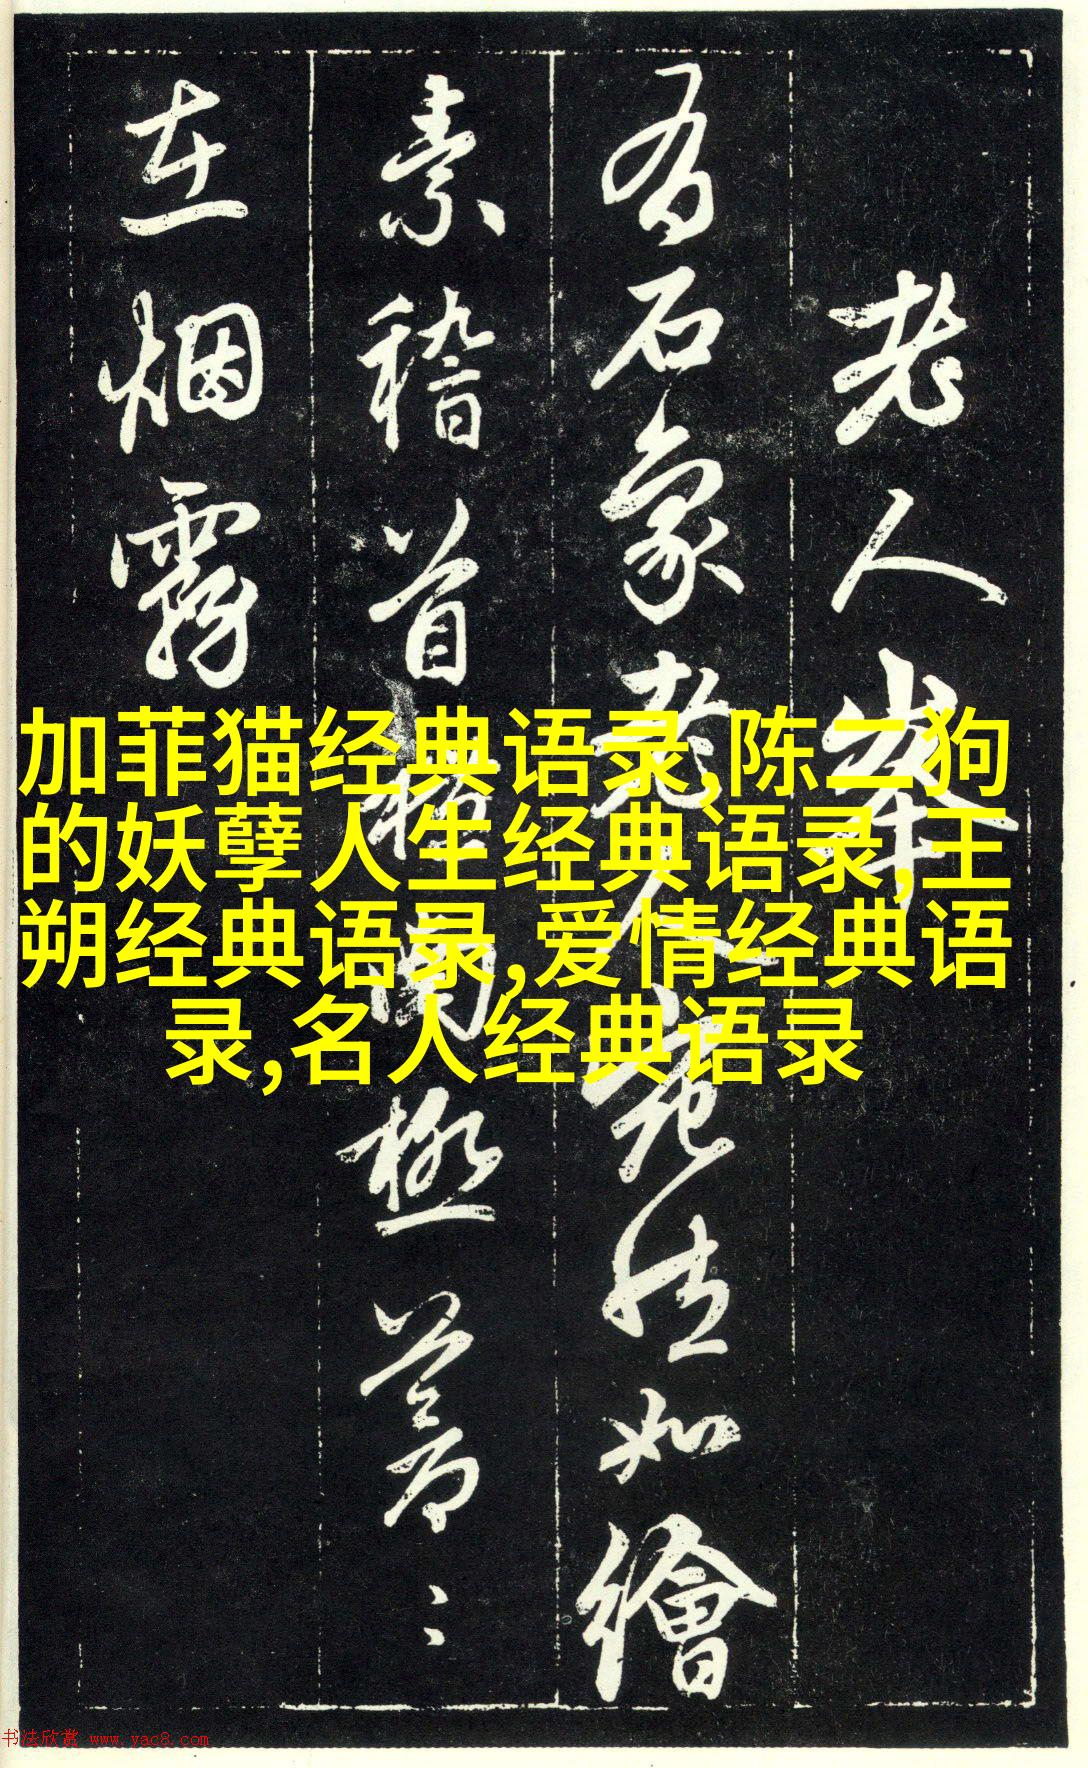 老人峯
有石象老人宛然如繪
素稽首南極蒼〻
在烟霧
加菲猫经典语录,陈二狗
的妖孽人生经典语录,王
朔经典语录,爱情经典语
录,名人经典语录
书法欣赏 www.yac8.com